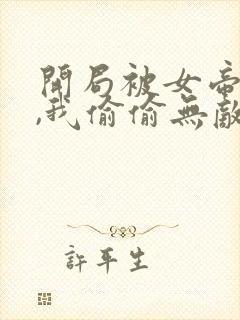 開局被女帝
,我偷偷無敵
許平生